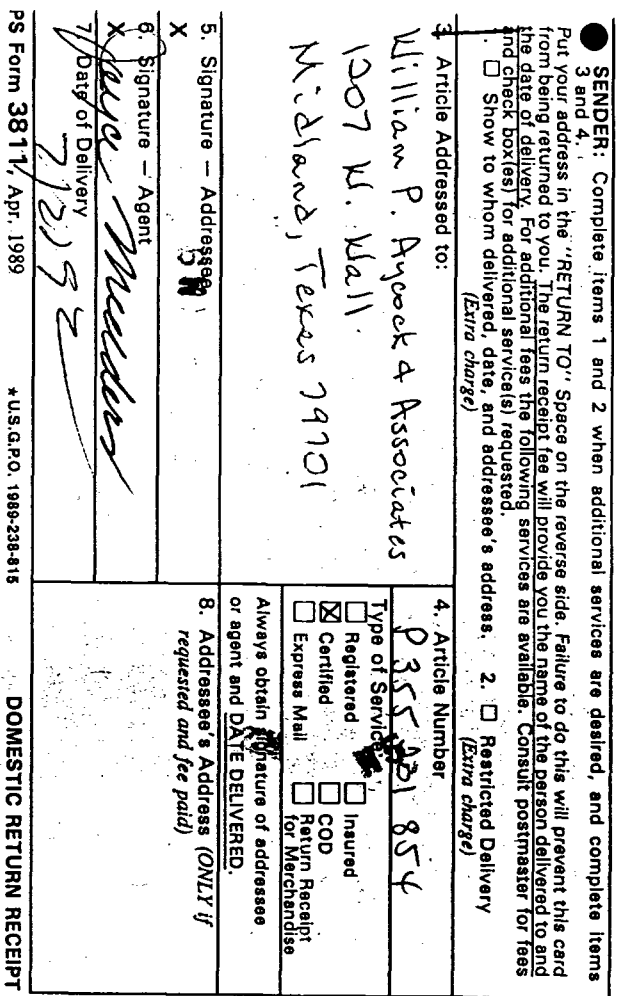 SENDER: Complete items 1 and 2 when additional services are desired, and complete items
3 and 4.
Put your address in the "RETURN TO" Space on the reverse side. Failure to do this will prevent this card
from being returned to you. The return receipt fee will provide you the name of the person delivered to and
the date of delivery. For additional fees the following services are available. Consult postmaster for fees
and check box(es) for additional service(s) requested.
☐ Show to whom delivered, date, and addressee's address. 2. ☐ Restricted Delivery
(Extra charge) (Extra charge)
3. Article Addressed to:
William P. Aycock & Associates
1207 W. Wall
Midland, Texas 79701
4. Article Number
P 355 854
Type of Service:
☐ Registered ☐ Insured
☒ Certified ☐ COD
☐ Express Mail ☐ Return Receipt
for Merchandise
Always obtain signature of addressee
or agent and DATE DELIVERED.
5. Signature — Addressee
X
6. Signature — Agent
X
7. Date of Delivery
8. Addressee's Address (ONLY if
requested and fee paid)
PS Form 3811, Apr. 1989 * U.S.G.P.O. 1989-238-815 DOMESTIC RETURN RECEIPT